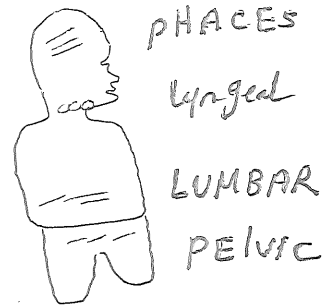 PHACES
Lyngeal
LUMBAR
PELVIC